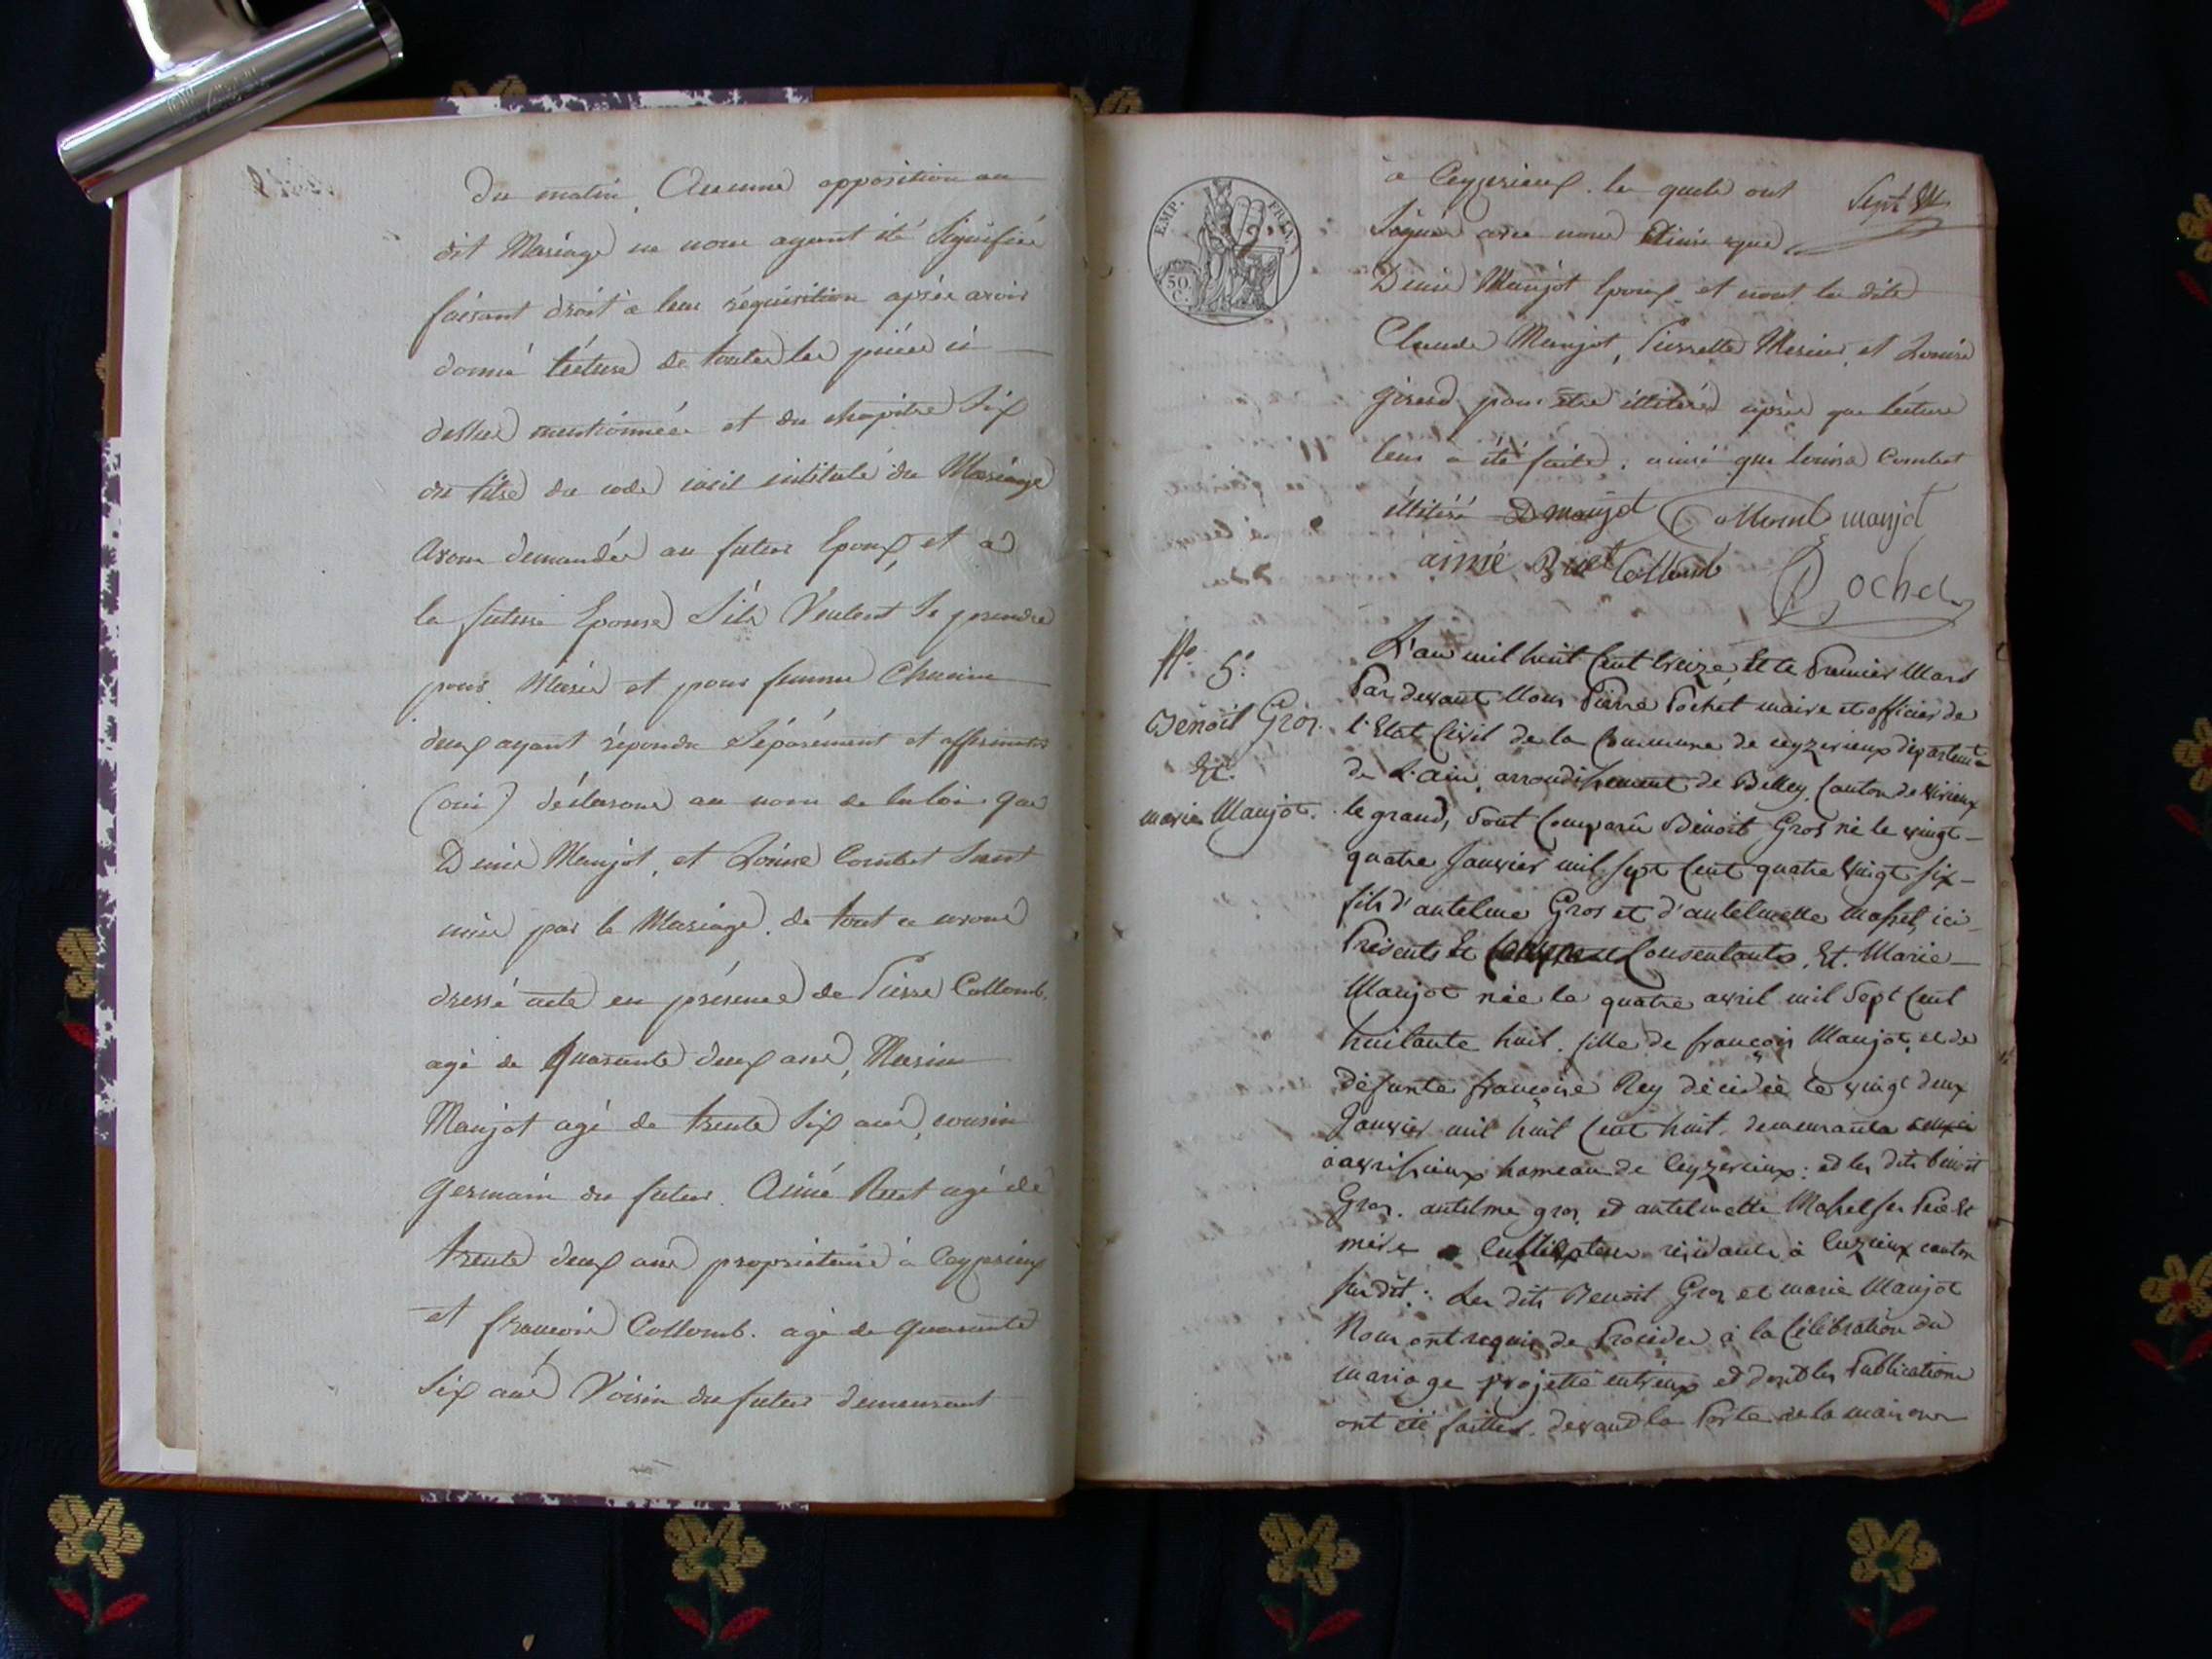 Du matin, Aucune opposition au
dit Mariage ne nous ayant été Signifiée
faisant droit à leur réquisition après avoir
donné lécture de toutes les pièces ci
dessus mentionnées et du chapitre Six
du titre du code civil intitulé du Mariage
Avons demandés au futur Epoux, et à
la future Epouse S'ils Veulent Se prendre
pour Marie et pour femme Chacun
deux ayant répondu Séparément et affirmative
(oui) déclarons au nom de la loi que
Denis Manjot, et Louise Combet Sont
unis par le Mariage. de tout ce avons
dressé acte en présence de Pierre Collomb.
agé de Quarante deux ans, Marin
Manjot agé de trente Six ans, cousin
Germain du futur. Aimé Ruet agé de
trente deux ans propriétaire à Ceyzerieux
et françois Collomb. agé de Quarante
Six ans Voisin du futur demeurant
EMP. FRAN.
50 C.
à Ceyzerieux. les quels ont
Sept
Signés avec nous
Denis Manjot Epoux et nont les dits
Claude Manjot, Pierrette Merieu et Louise
girerd pour être illitérés après que lécture
leur a été faite, ainsi que Louise Combet
illitéré D manjot Collomb manjot
aimé Ruet Collomb
Pochet
No. 5.
Benoit Gros.
Et.
marie Manjot.
L'an mil huit Cent treize, Et le Premier Mars
Par devant Nous Pierre Pochet maire et officier de
l'Etat Civil de la Commune de ceyzerieux départemt
de L'ain, arrondissement de Belley, Canton de virieux
le grand, Sont Comparû Benoit Gros né le vingt
quatre Janvier mil Sept Cent quatre vingt Six
fils d'antelme Gros et d'antelmette Massel, ici
Présents Et Consentants, Et. Marie
Manjot née le quatre avril mil Sept Cent
huitante huit. fille de françois Manjot, et de
défunte françoise Rey décédée le vingt deux
Janvier mil huit Cent huit. demeurants
à avrissieux hameau de Ceyzerieux: et les dits benoit
Gros. antelme gros, et antelmette Massel ses Père Et
mère Cultivateurs résidants à Cuzieux canton
Susdit: Les dits Benoit Gros et marie Manjot
Nous ont requis de Procéder à la Célébration du
mariage projetté entr'eux et dont les Publications
ont été faittes. devant la Porte de la maison